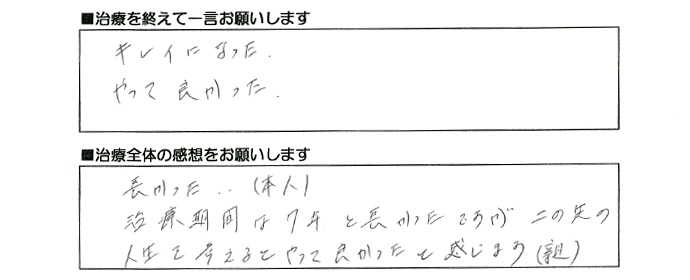 ■治療を終えて一言お願いします
キレイになった.
やって良かった.
■治療全体の感想をお願いします
長かった..(本人)
治療期間は7年と長かったですが この先の
人生を考えるとやって良かったと感じます(親)